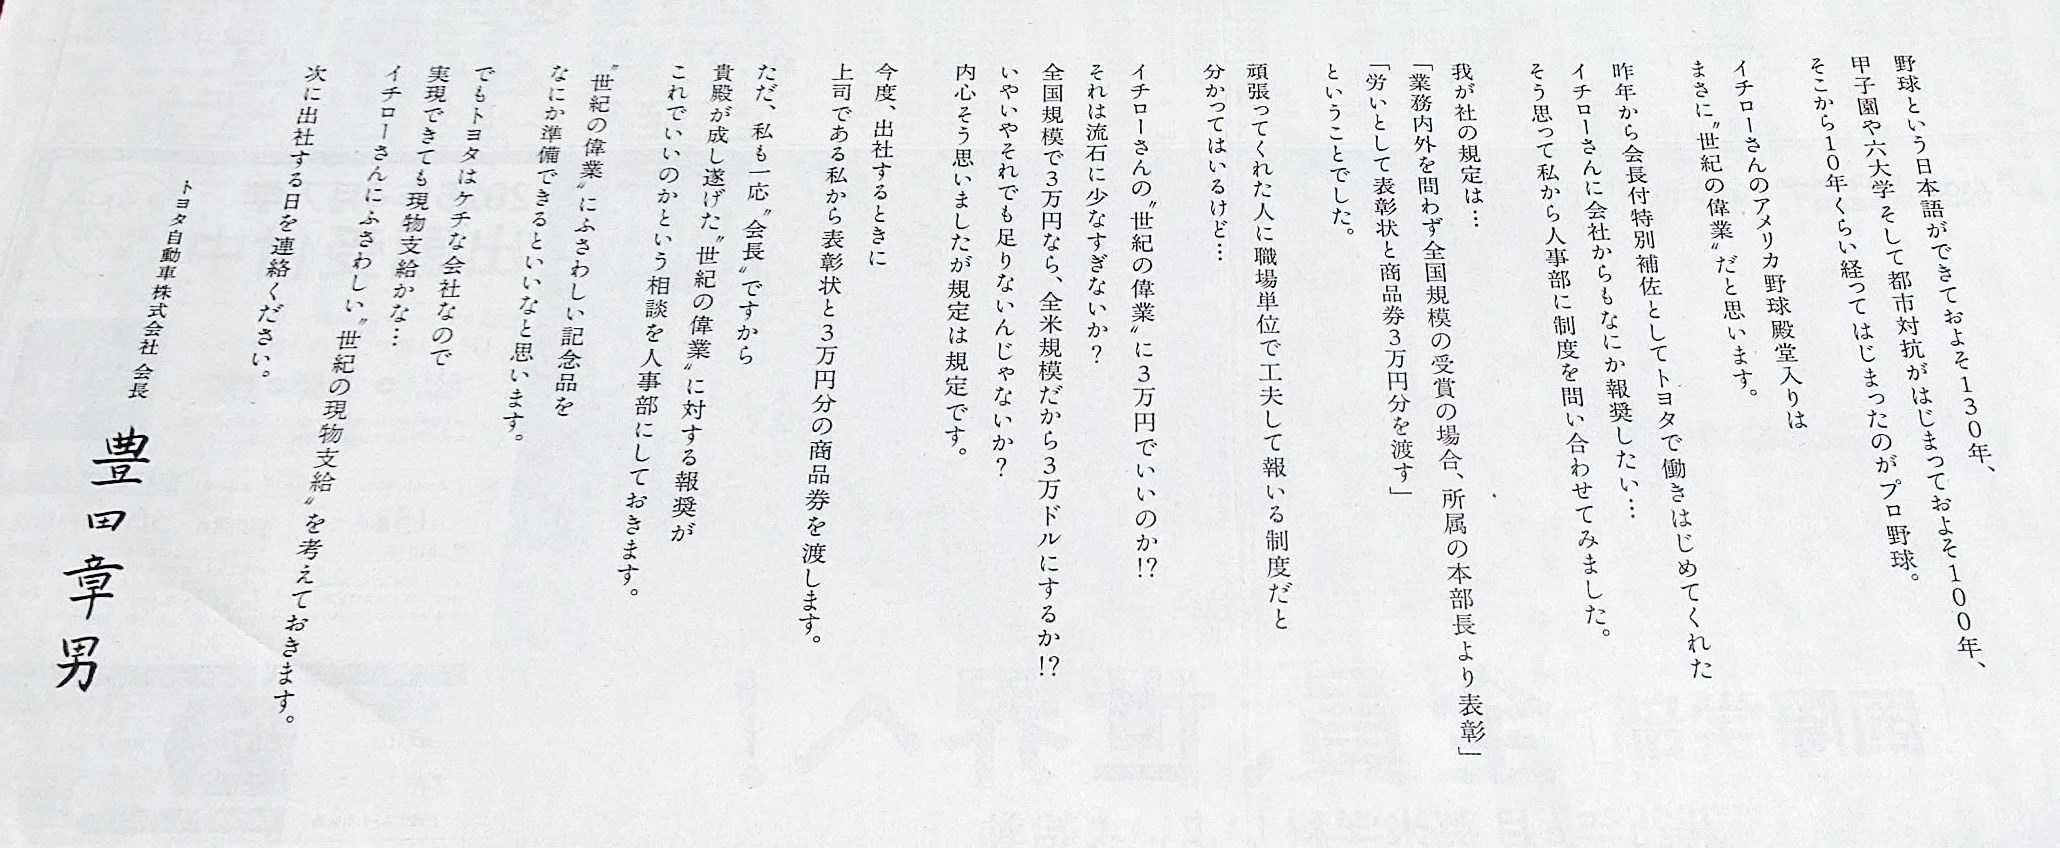 野球という日本語ができておよそ130年、
甲子園や六大学そして都市対抗がはじまっておよそ100年、
そこから10年くらい経ってはじまったのがプロ野球。
イチローさんのアメリカ野球殿堂入りは
まさに〝世紀の偉業〟だと思います。
昨年から会長付特別補佐としてトヨタで働きはじめてくれた
イチローさんに会社からもなにか報奨したい…
そう思って私から人事部に制度を問い合わせてみました。
我が社の規定は…
「業務内外を問わず全国規模の受賞の場合、所属の本部長より表彰」
「労いとして表彰状と商品券3万円分を渡す」
ということでした。
頑張ってくれた人に職場単位で工夫して報いる制度だと
分かってはいるけど…
イチローさんの〝世紀の偉業〟に3万円でいいのか!?
それは流石に少なすぎないか?
全国規模で3万円なら、全米規模だから3万ドルにするか!?
いやいやそれでも足りないんじゃないか?
内心そう思いましたが規定は規定です。
今度、出社するときに
上司である私から表彰状と3万円分の商品券を渡します。
ただ、私も一応〝会長〟ですから
貴殿が成し遂げた〝世紀の偉業〟に対する報奨が
これでいいのかという相談を人事部にしておきます。
〝世紀の偉業〟にふさわしい記念品を
なにか準備できるといいなと思います。
でもトヨタはケチな会社なので
実現できても現物支給かな…
イチローさんにふさわしい〝世紀の現物支給〟を考えておきます。
次に出社する日を連絡ください。
トヨタ自動車株式会社 会長
豊田章男